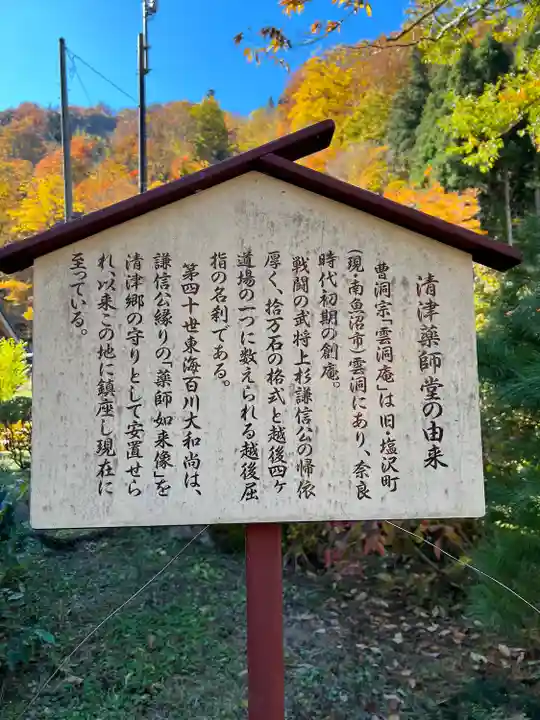 清津薬師堂の由来
曹洞宗「雲洞庵」は旧・塩沢町
(現・南魚沼市)雲洞にあり、奈良
時代初期の創庵。
戦闘の武将上杉謙信公の帰依
厚く、拾万石の格式と越後四ケ
道場の一つに数えられる越後屈
指の名刹である。
第四十世東海百川大和尚は、
謙信公縁りの「薬師如来像」を
清津郷の守りとして安置せら
れ、以来この地に鎮座し現在に
至っている。